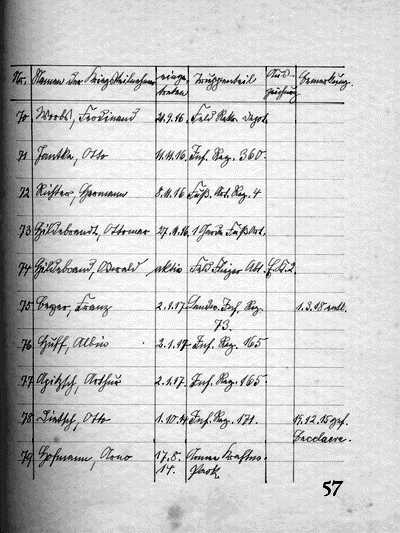 Nr. Namen der Kriegsteilnehmer einge- Truppenteil Aus- Bemerkung.
treten zeichnung
70 Ferdinand 21.9.16. Feld Rekr. Depot.
71 Jantke, Otto 11.11.16. Inf. Reg. 360.
72 Richter, Hermann 8.11.16 Fuß. Art. Reg. 4
73 Hildebrandt, Ottomar 27.11.16. 1 Garde Fußart.
74 Hildebrand, Ewald aktiv Feld Flieger Abt. E.K.2.
75 Beyer, Franz 2.1.17. Landw. Inf. Reg. 1.3.18 entl.
73.
76 Huff, Albin 2.1.17 Inf. Reg. 165
77 Arthur 2.1.17. Inf. Reg. 165.
78 Dietsch, Otto 1.10.14 Inf. Reg. 171. gef.
79 Hofmann, Arno 17.8. Armee Kraftw.
14. Park.
57